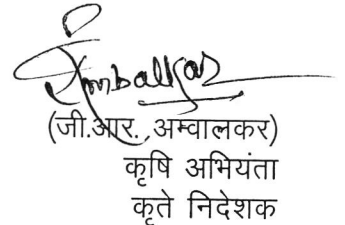 Ambalkar
(जी.आर. अम्वालकर)
कृषि अभियंता
कृते निदेशक